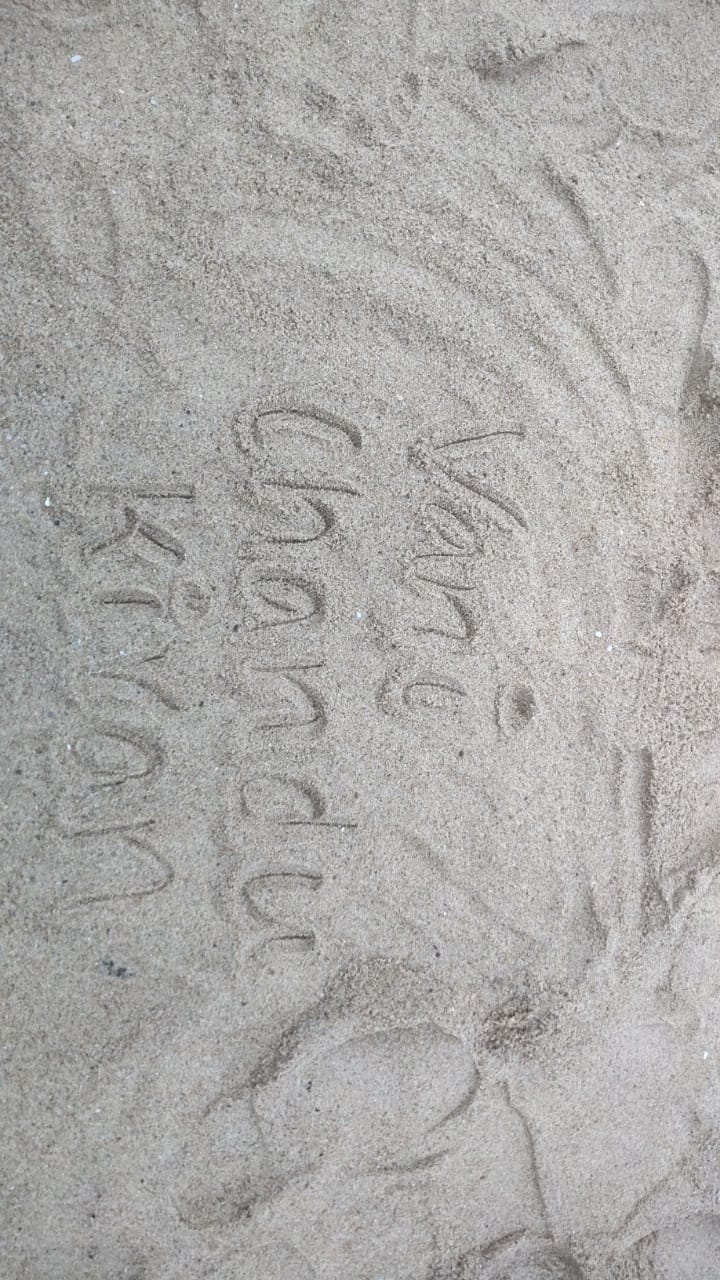 Vani
Chandu
kiran